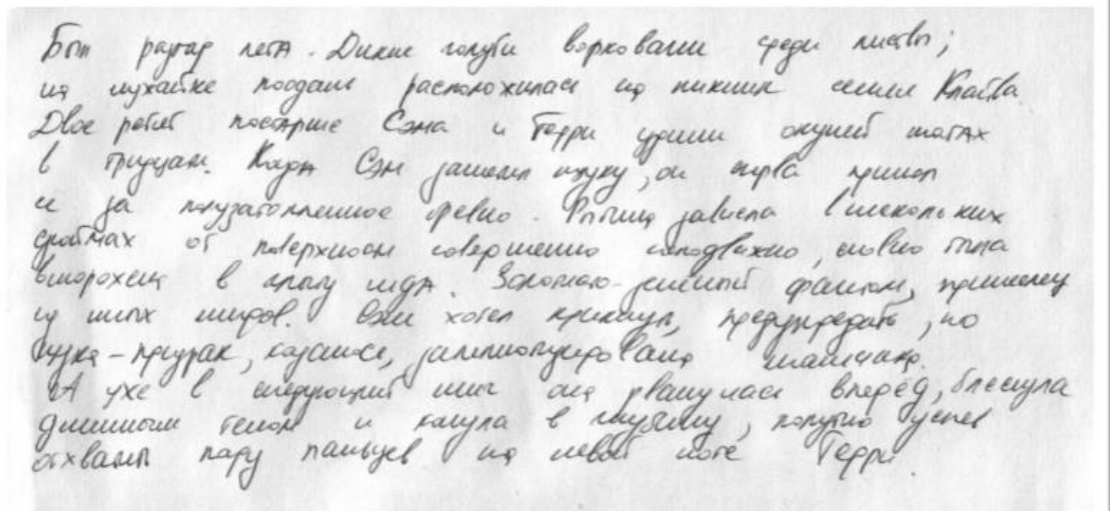 Был разгар лета. Дикие голуби ворковали среди листвы;
на лужайке поодаль расположилась на пикник семья Клайва.
Двое ребят постарше Сэма и Терри удили окуней шагах
в тридцати. Когда Сэм заметил щуку, он сперва принял
ее за полузатопленное бревно. Рыбина зависла в нескольких
дюймах от поверхности совершенно неподвижно, словно была
вморожена в глыбу льда. Золотисто-зеленый фантом, пришелец
из иных миров. Сэм хотел крикнуть, предупредить, но
щука-призрак, казалось, загипнотизировала мальчика.
А уже в следующий миг она рванулась вперёд, блеснула
длинным телом и канула в глубину, попутно успев
отхватить пару пальцев на левой ноге Терри.